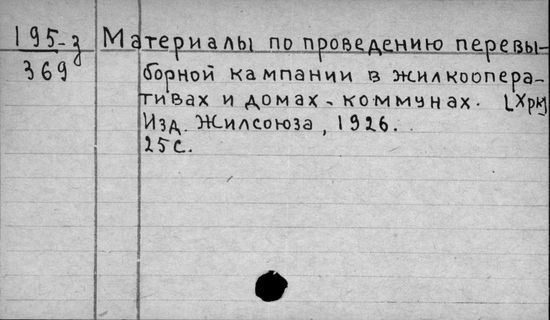 195-з
369
Материалы по проведению перевы-
борной кампании в жилкоопера-
тивах и домах-коммунах. [Хрк]
Изд. Жилсоюза, 1926.
25с.